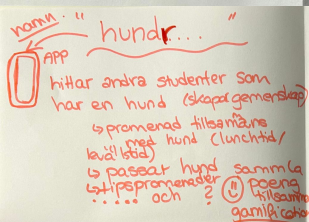 namn: "hundr...."
APP
hittar andra studenter som
har en hund (skapar gemenskap)
↳ promenad tillsamans
med hund (lunchtid/
kvällstid)
↳ passar hund
↳ tipspromenader
..... och ?
samla
poeng
tillsamm
gamification